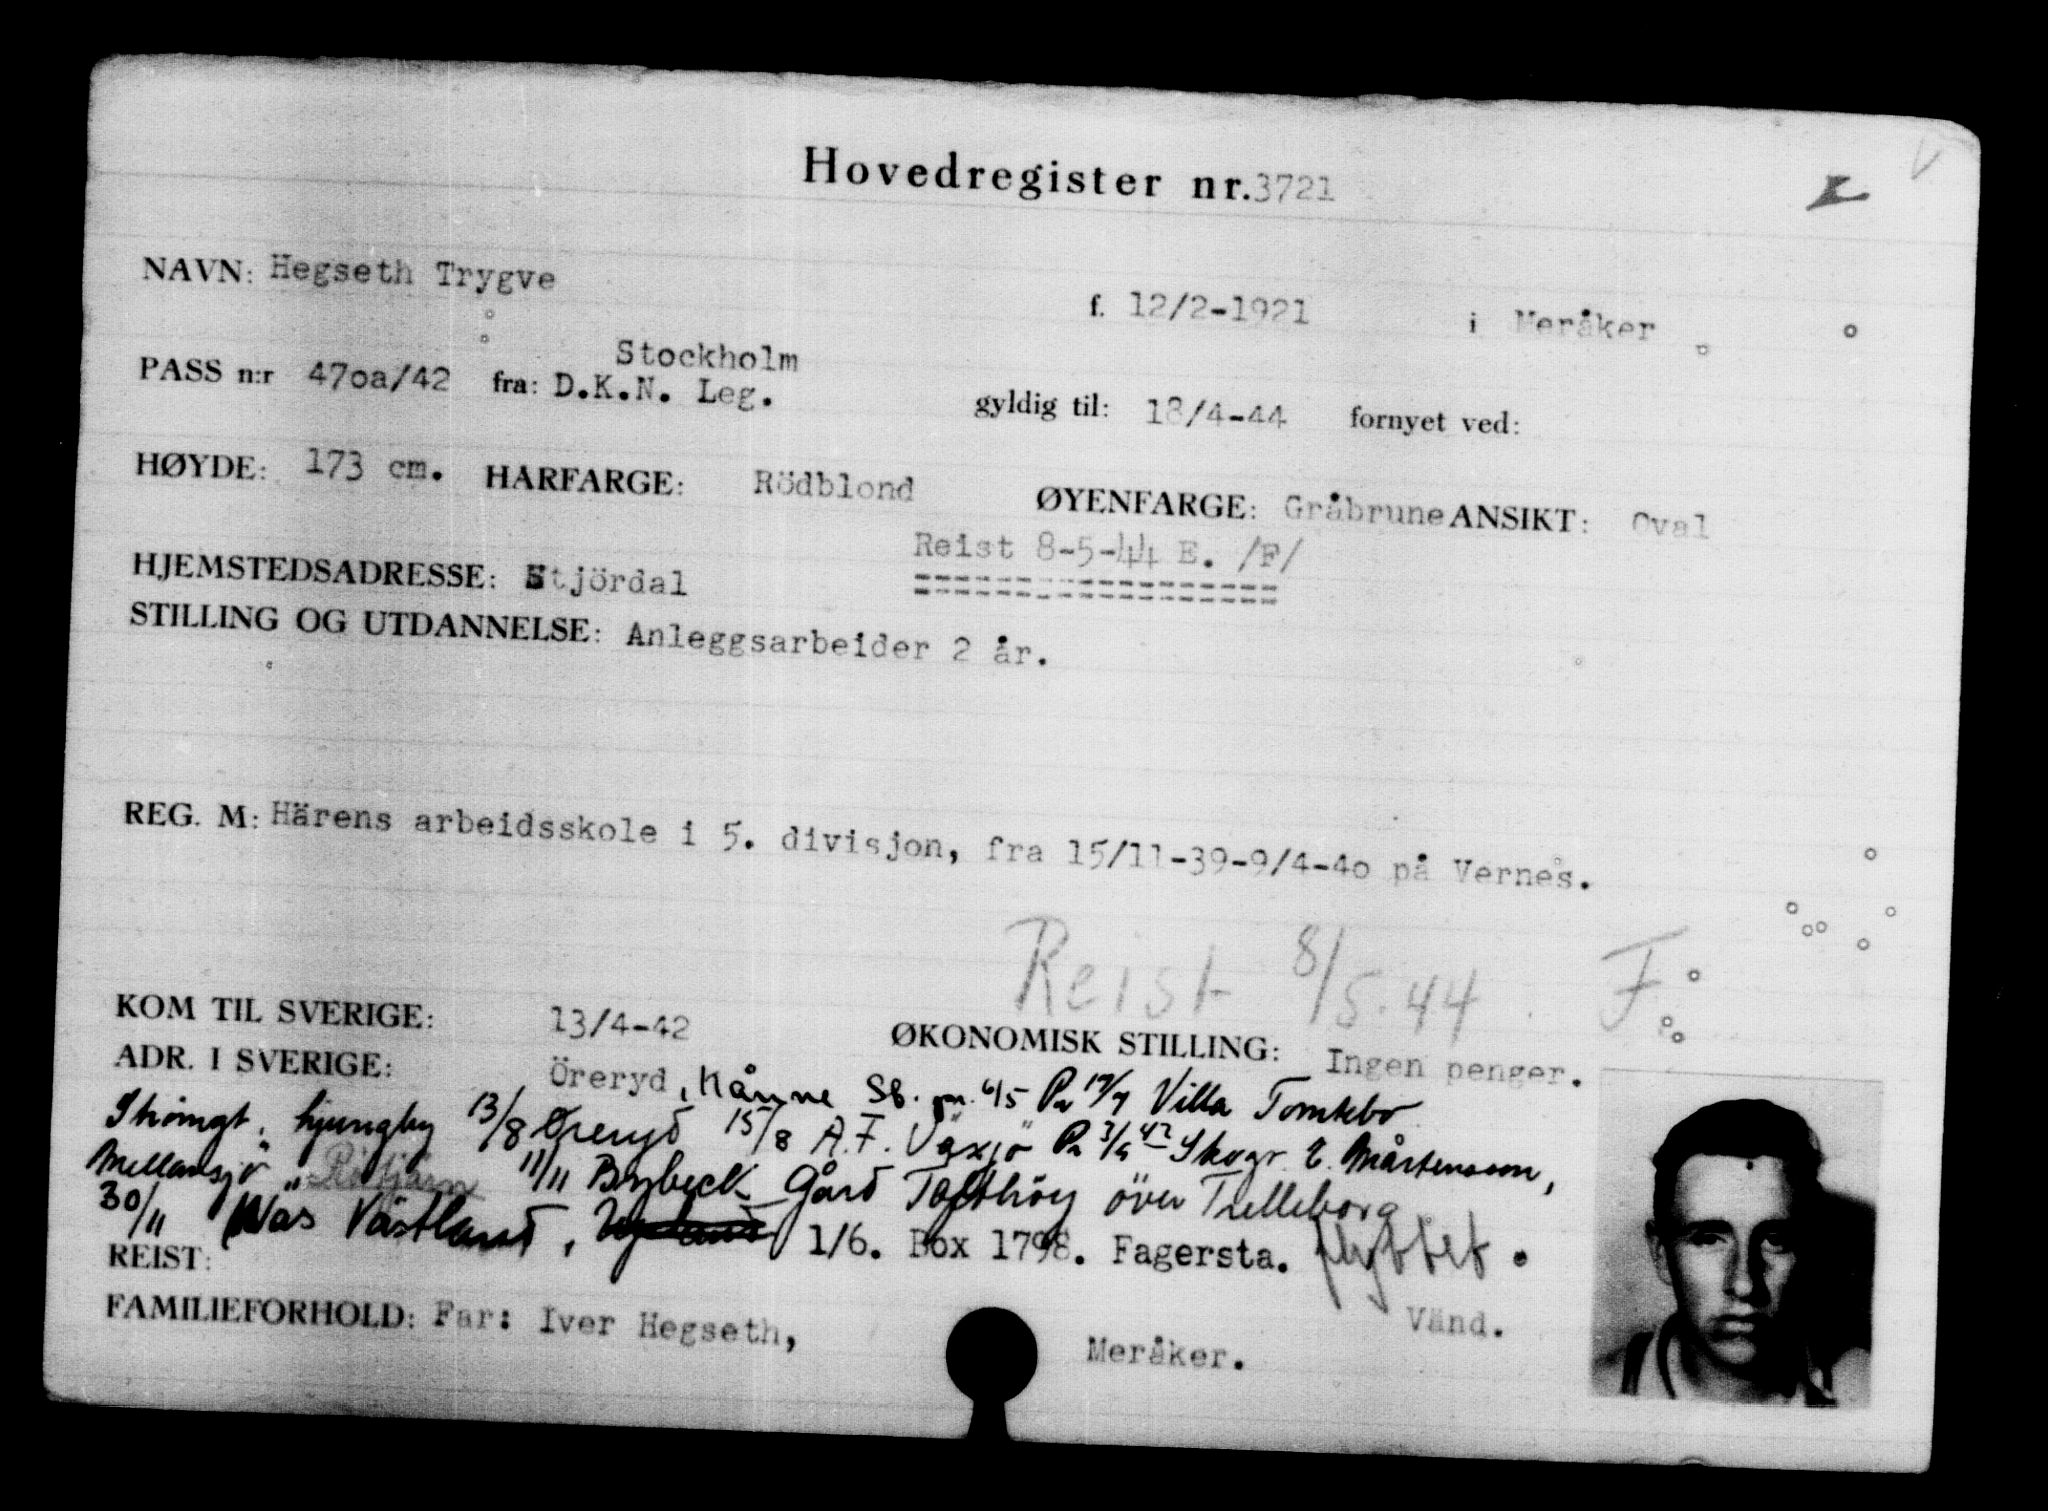 Hovedregister nr. 3721
NAVN: Hegseth Trygve f. 12/2-1921 i Meråker
Stockholm
PASS n:r 47oa/42 fra: D.K.N. Leg. gyldig til: 18/4-44 fornyet ved:
HØYDE: 173 cm. HARFARGE: Rödblond ØYENFARGE: Gråbrune ANSIKT: Oval
Reist 8-5-44 E. /F/
HJEMSTEDSADRESSE: Stjördal
STILLING OG UTDANNELSE: Anleggsarbeider 2 år.
REG. M: Härens arbeidsskole i 5. divisjon, fra 15/11-39-9/4-4o på Vernes.
Reist 8/5.44 F
KOM TIL SVERIGE: 13/4-42 ØKONOMISK STILLING: Ingen penger.
ADR. I SVERIGE: Öreryd, Kånne Sb. 6/5 Villa Tomtebo
13/8 Øreryd 15/8 A.F. Växjö Skogr. Mårtensson,
Mellansjö 11/11 Gård över Trelleborg
30/11 Näs Västland, 1/6. Box 1798. Fagersta. flyttet.
REIST:
Vänd.
FAMILIEFORHOLD: Far: Iver Hegseth, Meråker.